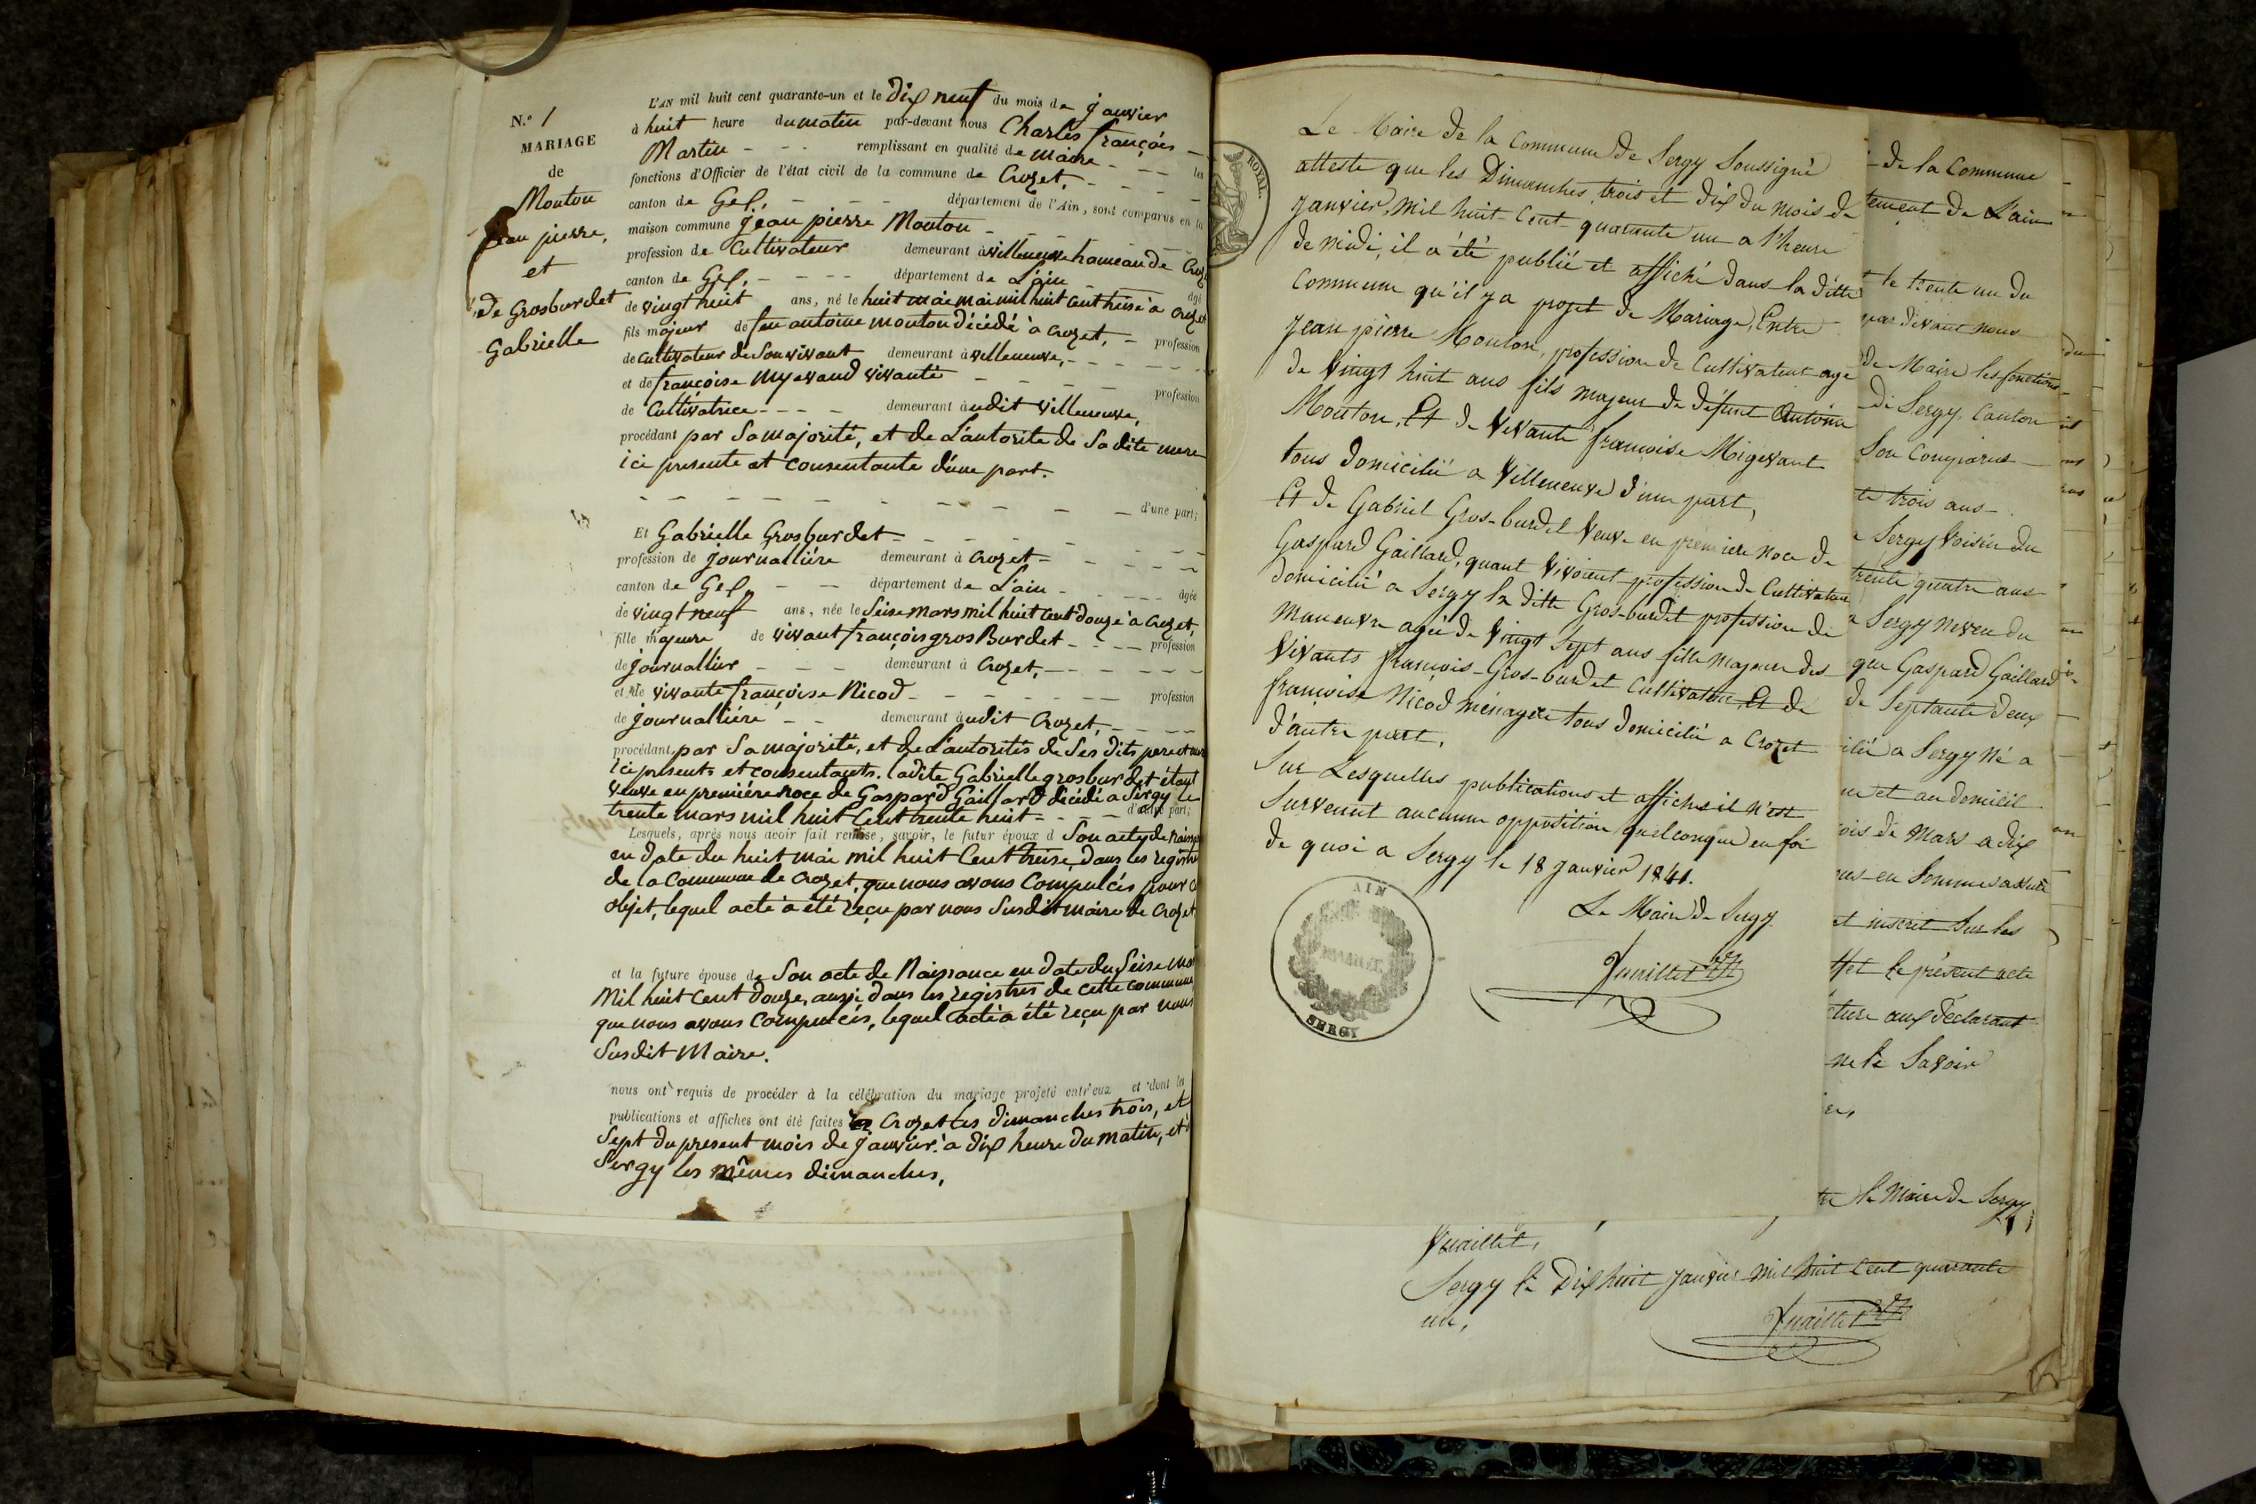 N.º 1
MARIAGE
de
Mouton
Jean pierre,
et
de Grosburdet
Gabrielle
L'AN mil huit cent quarante-un et le dix neuf du mois de janvier
à huit heure du matin par-devant nous Charles françois
Martin remplissant en qualité de maire les
fonctions d'Officier de l'état civil de la commune de Crozet,
canton de Gex, département de l'Ain, sont comparus en la
maison commune jean pierre Mouton
profession de Cultivateur demeurant à villeneuve hameau de Croz
canton de Gex, département de L'ain âgé
de vingt huit ans, né le huit mai mil huit cent treise à Crozet
fils majeur de feu antoine mouton décédé à Crozet, profession
de cultivateur de Son vivant demeurant à villeneuve,
et de françoise Myevand vivante profession
de Cultivatrice demeurant à udit villeneuve,
procédant par Sa majorité, et de L'autorite de Sa dite mere
ici presente et consentante d'une part.
d'une part;
Et Gabrielle Grosburdet
profession de journallière demeurant à Crozet
canton de Gex département de L'ain âgée
de vingt neuf ans, née le Seise mars mil huit cent douze à Crozet,
fille majeure de vivant françois gros Burdet profession
de journallier demeurant à Crozet,
et de vivante françoise Nicod profession
de journallière demeurant à udit Crozet,
procédant par Sa majorité, et de L'autorités de Ses dits pere et mere
ici presents et consentants. ladite Gabrielle grosburdet étant
veuve en première noce de Gaspard Gaillard décédé a Sergy le
trente mars mil huit Cent trente huit d'autre part;
Lesquels, après nous avoir fait remise, savoir, le futur époux d Son acte de Naiss
en date du huit mai mil huit Cent treise, dans les registres
de la Commune de Crozet, que nous avons Compulcés pour c
objet, lequel acte a été reçu par nous Susdit maire de Crozet
et la future épouse de Son acte de Naissance en date du Seise mar
Mil huit Cent douze, aussi dans les registres de cette commune
que nous avons Compulcés, lequel acte a été reçu par nous
Susdit Maire.
nous ont requis de procéder à la célébration du mariage projeté entr'eux et dont les
publications et affiches ont été faites Crozet Les dimanches trois, et
Sept du present mois de janvier à dix heure du matin, et à
Sergy les mêmes dimanches,
ROYAL
Le Maire de la Commune de Sergy Soussigné
atteste que les Dimanches, trois et dix du mois de
janvier, mil huit Cent quarante un a l'heure
de midi, il a été publié et affiché dans la ditte
Commune qu'il y a projet de Mariage, Entre
jean pierre Mouton, profession de Cultivateur agé
de Vingt huit ans fils majeur de défunt Antoine
Mouton, Et de Vivante francoise Migevant
tous domicilié a Villeneuve d'une part,
Et de Gabriel Gros-burdet Veuve en premiere noce de
Gaspard Gaillard, quant Vivoient profession de Cultivateur
domicilié a Sergy la ditte Gros-burdet profession de
Maneuvre agée de Vingt Sept ans fille majeure des
Vivants françois Gros-burdet Cultivateur Et de
françoise Nicod ménagere tous domicilié a Crozet
d'autre part.
Sur Lesquelles publications et affiches il n'est
Survenut aucunne opposition quelconque en foi
de quoi a Sergy le 18 janvier 1841.
Le Maire de Sergy
AIN
MAIRIE
SERGY
de la Commune
tement de L'ain
t le trente un du
par divant nous
de Maire les fonctions
de Sergy, Canton
Son Comparus
te trois ans
a Sergy Voisin du
trente quatre ans
a Sergy neveu du
que Gaspard Gaillard
de Septante deux
ilié a Sergy Né a
ne et au domicil
ois de Mars a dix
et inscrit Sur les
ffet le présent acte
cture aux déclarant
ne le Savoir
tre le Maire de Sergy
Vuaillet,
Sergy le Dix huit janvier mil huit Cent quarante
un,
Vuaillet